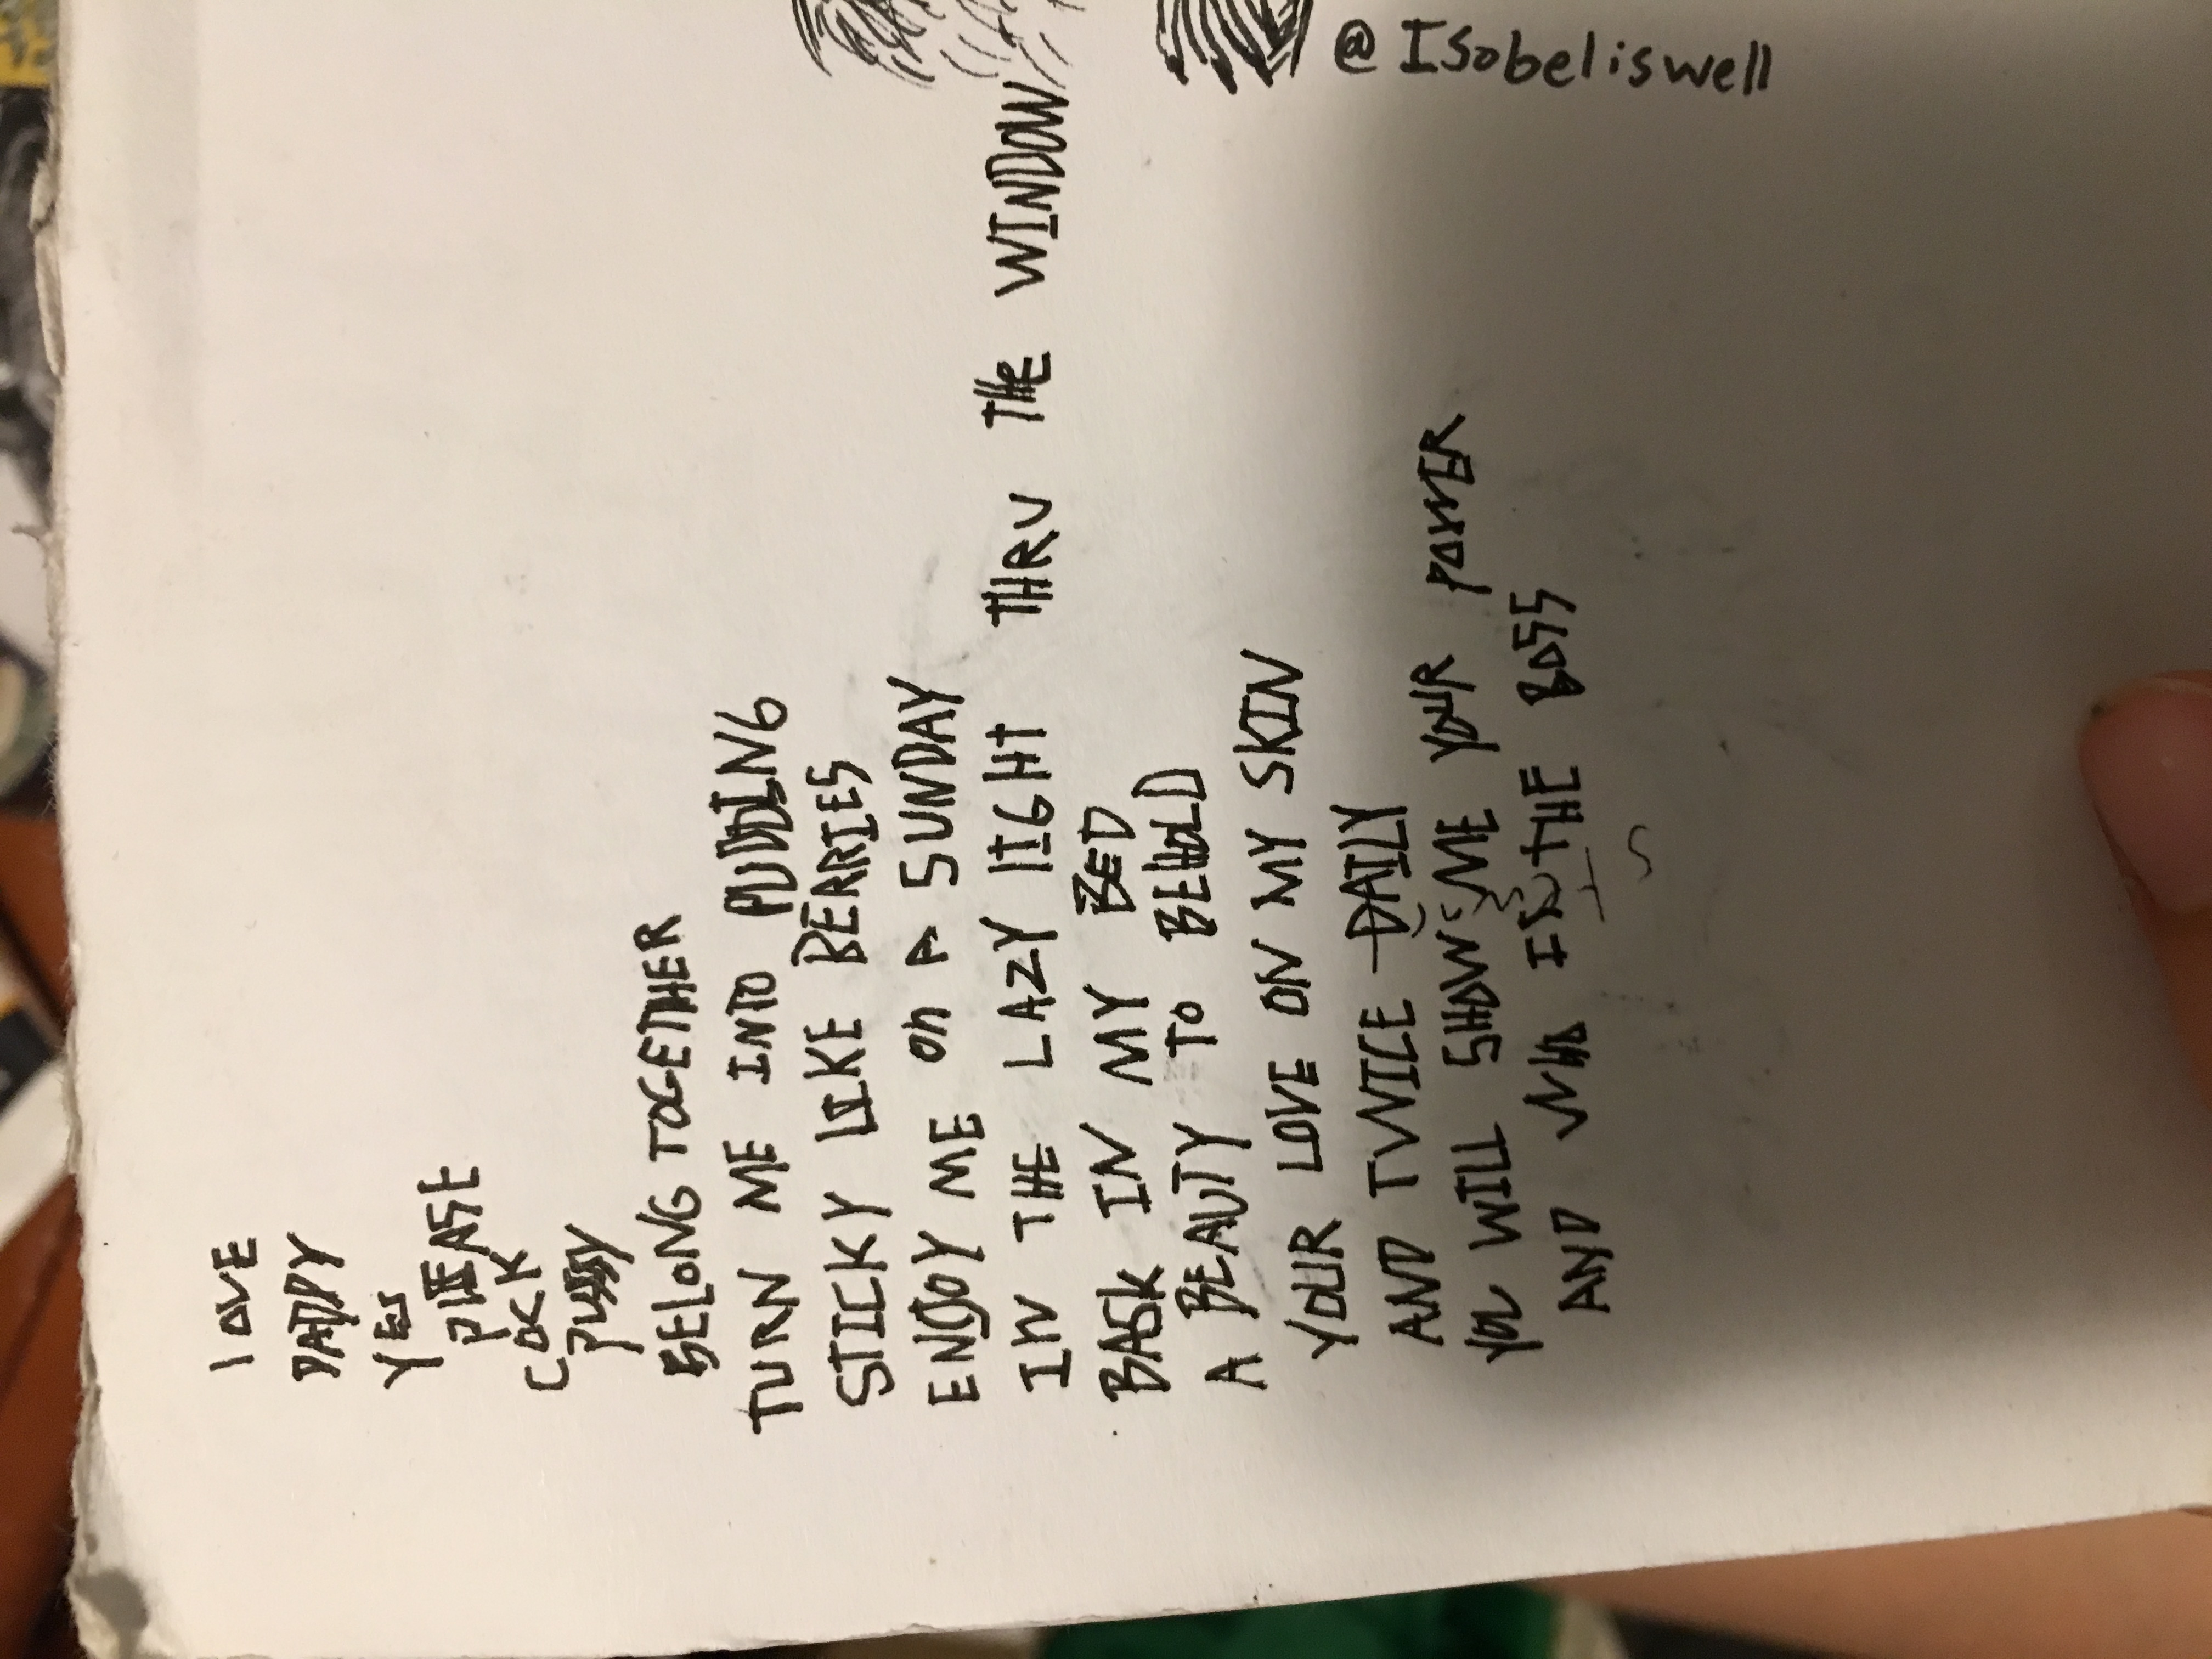 LOVE
DADDY
YES
PLEASE
COCK
PUSSY
BELONG TOGETHER
TURN ME INTO PUDDING
STICKY LIKE BERRIES
ENJOY ME on A SUNDAY
IN THE LAZY lIGHt THRU THE WINDOW
BASK IN MY BED
A BEAUTY TO BEHOLD
YOUR LOVE ON MY SKIN
AND TWICE DAILY
YOU WILL SHOW ME YOUR POWER
AND WHO IS THE BOSS
IS
@Isobeliswell